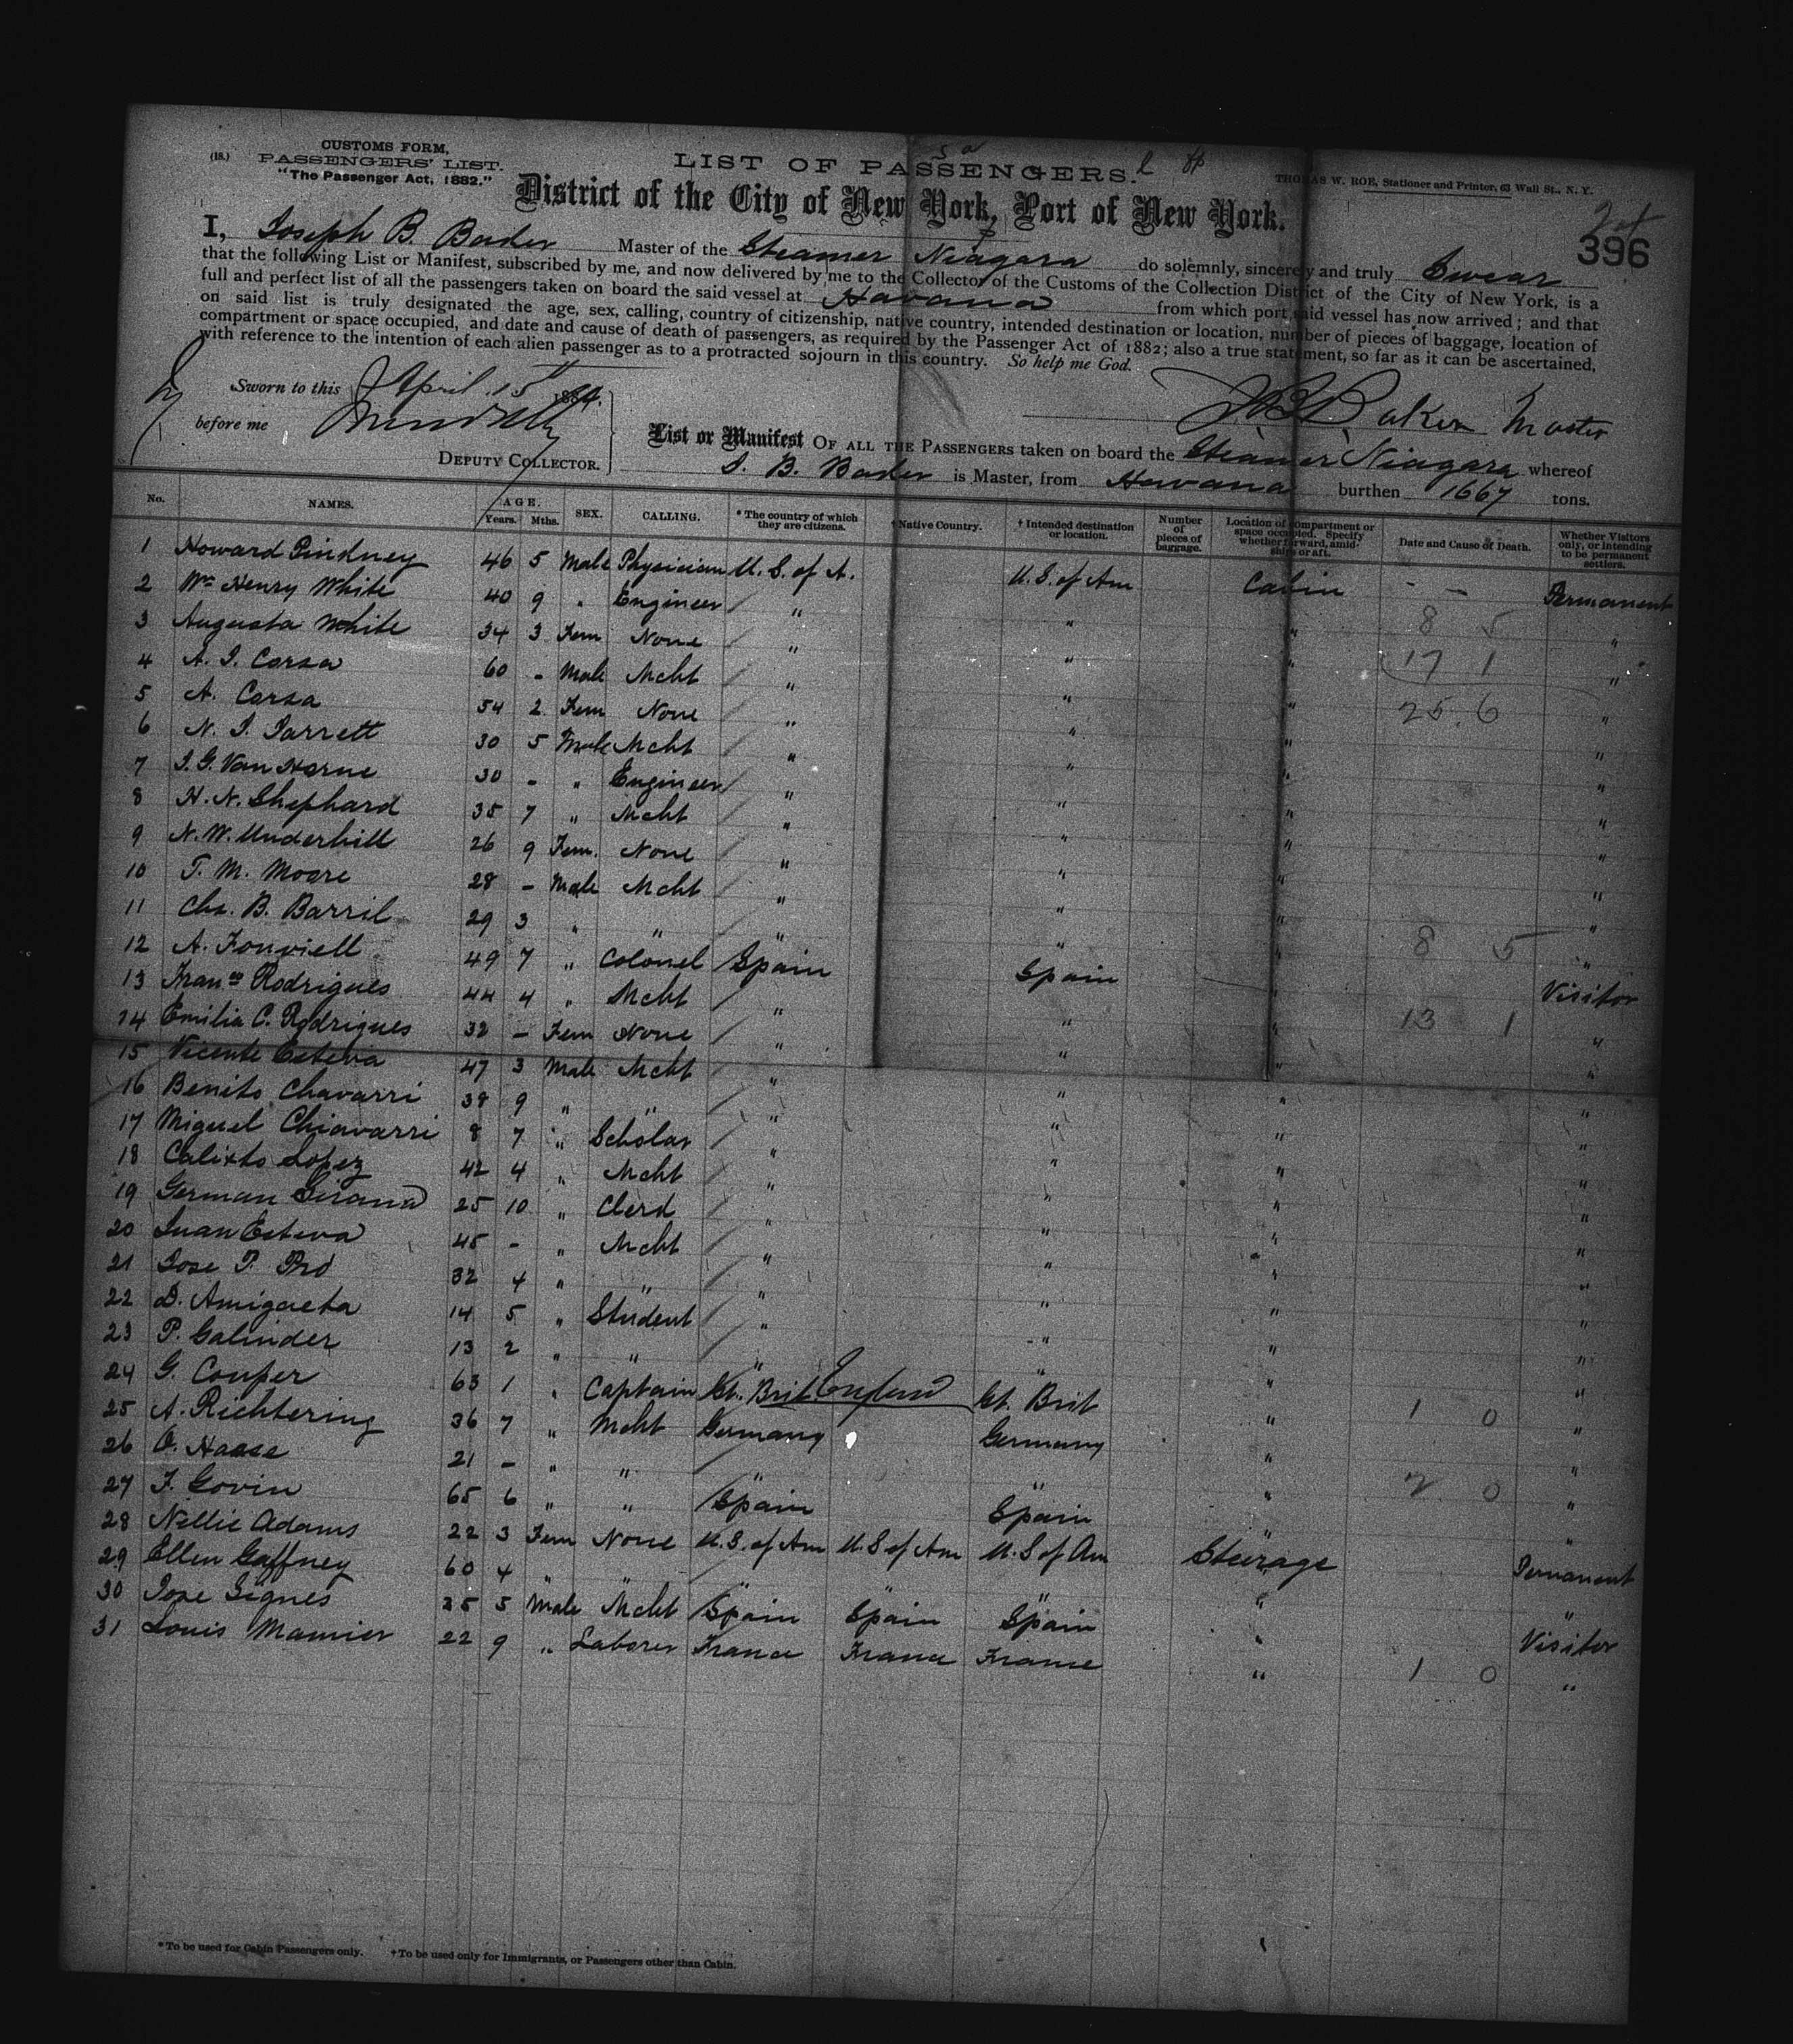 CUSTOMS FORM,
(18.) PASSENGERS' LIST.
"The Passenger Act, 1882."
LIST OF PASSENGERS.
THOMAS W. ROE, Stationer and Printer, 63 Wall St., N. Y.
District of the City of New York, Port of New York.
396
I, Joseph B. Baker Master of the Steamer Niagara do solemnly, sincerely and truly Swear
that the following List or Manifest, subscribed by me, and now delivered by me to the Collector of the Customs of the Collection District of the City of New York, is a
full and perfect list of all the passengers taken on board the said vessel at Havana from which port said vessel has now arrived; and that
on said list is truly designated the age, sex, calling, country of citizenship, native country, intended destination or location, number of pieces of baggage, location of
compartment or space occupied, and date and cause of death of passengers, as required by the Passenger Act of 1882; also a true statement, so far as it can be ascertained,
with reference to the intention of each alien passenger as to a protracted sojourn in this country. So help me God.
Sworn to this April 15th 1884.
before me
J. B. Baker Master
DEPUTY COLLECTOR.
List or Manifest OF ALL THE PASSENGERS taken on board the Steamer Niagara whereof
J. B. Baker is Master, from Havana burthen 1667 tons.
No. NAMES. AGE. Years. Mths. SEX. CALLING. * The country of which they are citizens. † Native Country. † Intended destination or location. Number of pieces of baggage. Location of compartment or space occupied. Specify whether forward, amidships or aft. Date and Cause of Death. Whether Visitors only, or intending to be permanent settlers.
1 Howard Pinckney 46 5 Male Physician U. S. of A. U. S. of Am Cabin - Permanent
2 Wm Henry White 40 9 " Engineer " " " 8 5 "
3 Augusta White 34 3 Fem None " " " 17 1 "
4 A. J. Corsa 60 - Male Mcht " " " 25 6 "
5 A. Corsa 54 2 Fem None " " " "
6 N. J. Jarrett 30 5 Male Mcht " " " "
7 J. G. Van Horne 30 - " Engineer " " " "
8 H. N. Shephard 35 7 " Mcht " " " "
9 N. W. Underhill 26 9 Fem. None " " " "
10 T. M. Moore 28 - Male Mcht " " " "
11 Chs. B. Barril 29 3 " " " " " 8 5 "
12 A. Fonviell 49 7 " Colonel Spain Spain " Visitor
13 Franco Rodrigues 44 4 " Mcht " " " 13 1 "
14 Emilia C. Rodrigues 32 - Fem None " " " "
15 Vicente Esteva 47 3 Male Mcht " " " "
16 Benito Chavarri 38 9 " " " " " "
17 Miguel Chiavarri 8 7 " Scholar " " " "
18 Calixto Lopez 42 4 " Mcht " " " "
19 German 25 10 " Clerd " " " "
20 Juan Esteva 45 - " Mcht " " " "
21 Jose P. Pro 32 4 " " " " " "
22 D. Amigaeta 14 5 " Student " " " "
23 P. Galinder 13 2 " " " " " "
24 G. Couper 63 1 " Captain Gt. Brit. England Gt. Brit " 1 0 "
25 A. Richtering 36 7 " Mcht Germany Germany " "
26 O. Haase 21 - " " " " " 2 0 "
27 F. Govin 65 6 " " Spain Spain " "
28 Nellie Adams 22 3 Fem None U. S. of Am U. S of Am U. S of Am Steerage Permanent
29 Ellen Gaffney 60 4 " " " " " " "
30 Jose Signes 25 5 Male Mcht Spain Spain Spain " Visitor
31 Louis Mamier 22 9 " Laborer France France France " 1 0 "
* To be used for Cabin Passengers only. † To be used only for Immigrants, or Passengers other than Cabin.